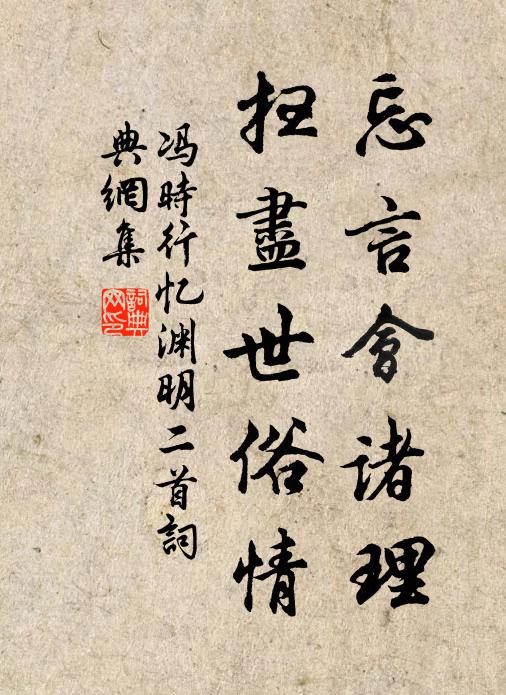 忘言會诸理
扫盡世俗情
冯時行忆渊明二首詞
典網集
詞典網印